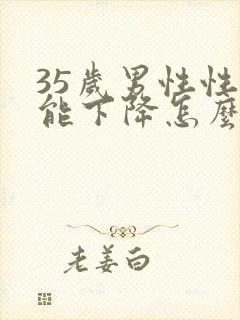 35歲男性性
能下降怎麼
老姜白